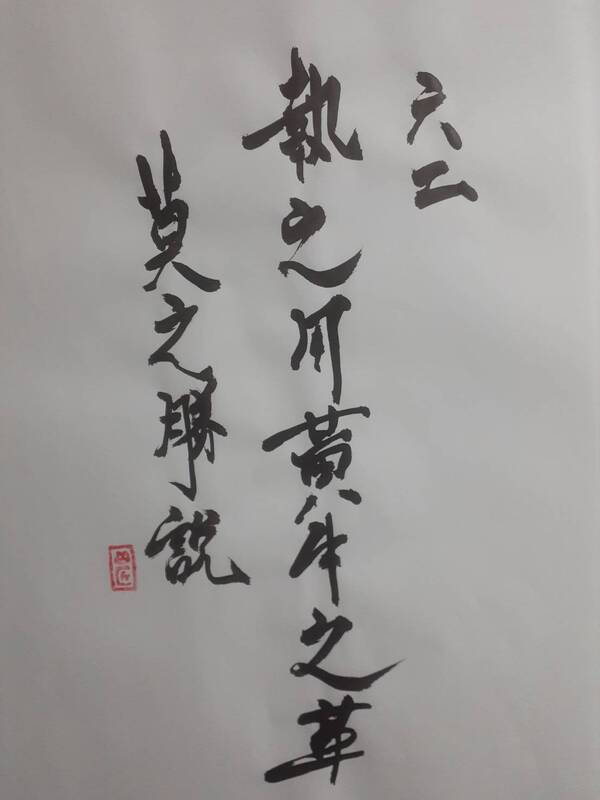 六二
執之用黃牛之革
莫之勝說